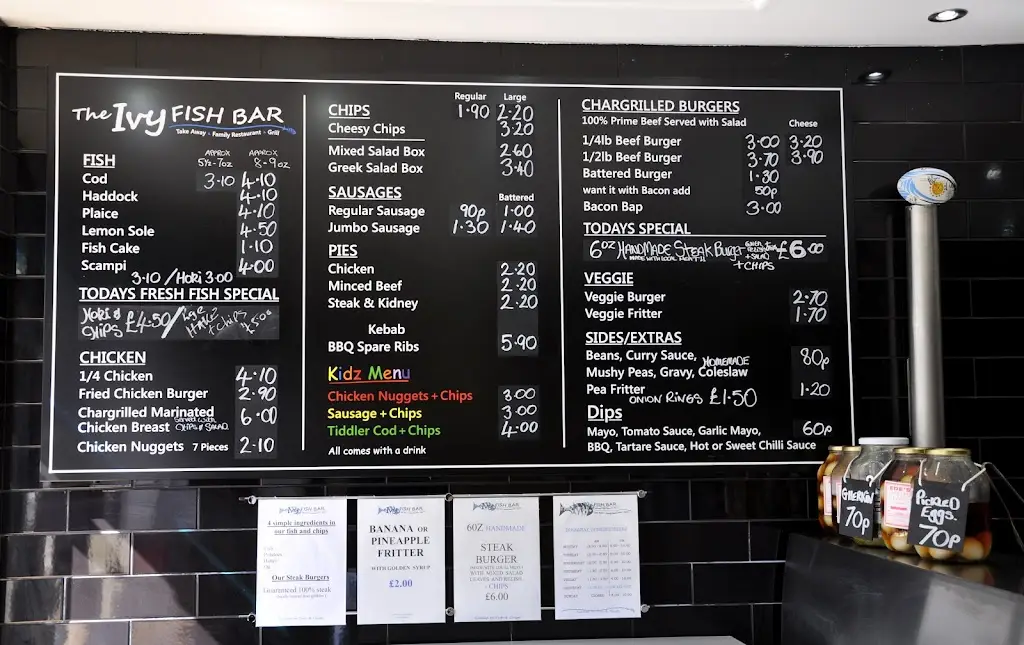 The Ivy FISH BAR
Take Away - Family Restaurant - Grill
FISH
APPROX 5½-7oz APPROX 8-9oz
Cod 3·10 4·10
Haddock 4·10
Plaice 4·10
Lemon Sole 4·50
Fish Cake 1·10
Scampi 4·00
3·10 / HOKI 3·00
TODAYS FRESH FISH SPECIAL
CHIPS £4·50 / HAKE + CHIPS £5·00
CHICKEN
1/4 Chicken 4·10
Fried Chicken Burger 2·90
Chargrilled Marinated
Chicken Breast SERVED WITH CHIPS & SALAD 6·00
Chicken Nuggets 7 Pieces 2·10
Regular Large
CHIPS 1·90 2·20
Cheesy Chips 3·20
Mixed Salad Box 2·60
Greek Salad Box 3·40
SAUSAGES Battered
Regular Sausage 90p 1·00
Jumbo Sausage 1·30 1·40
PIES
Chicken 2·20
Minced Beef 2·20
Steak & Kidney 2·20
Kebab
BBQ Spare Ribs 5·90
Kidz Menu
Chicken Nuggets + Chips 3·00
Sausage + Chips 3·00
Tiddler Cod + Chips 4·00
All comes with a drink
CHARGRILLED BURGERS
100% Prime Beef Served with Salad
Cheese
1/4lb Beef Burger 3·00 3·20
1/2lb Beef Burger 3·70 3·90
Battered Burger 1·30
want it with Bacon add 50p
Bacon Bap 3·00
TODAYS SPECIAL
6oz HANDMADE STEAK BURGER + SALAD + CHIPS £6·00
VEGGIE
Veggie Burger 2·70
Veggie Fritter 1·70
SIDES/EXTRAS
Beans, Curry Sauce, HOMEMADE
Mushy Peas, Gravy, Coleslaw 80p
Pea Fritter 1·20
ONION RINGS £1·50
Dips
Mayo, Tomato Sauce, Garlic Mayo, 60p
BBQ, Tartare Sauce, Hot or Sweet Chilli Sauce
GHERKIN
70p
PICKLED
EGGS.
70p
4 simple ingredients in
our fish and chips
Our Steak Burgers
Guaranteed 100% steak
Ivy FISH BAR
BANANA OR
PINEAPPLE
FRITTER
WITH GOLDEN SYRUP
£2.00
FISH BAR
6OZ HANDMADE
STEAK
BURGER
WITH MIXED SALAD
- CHIPS
£6.00
FISH BAR